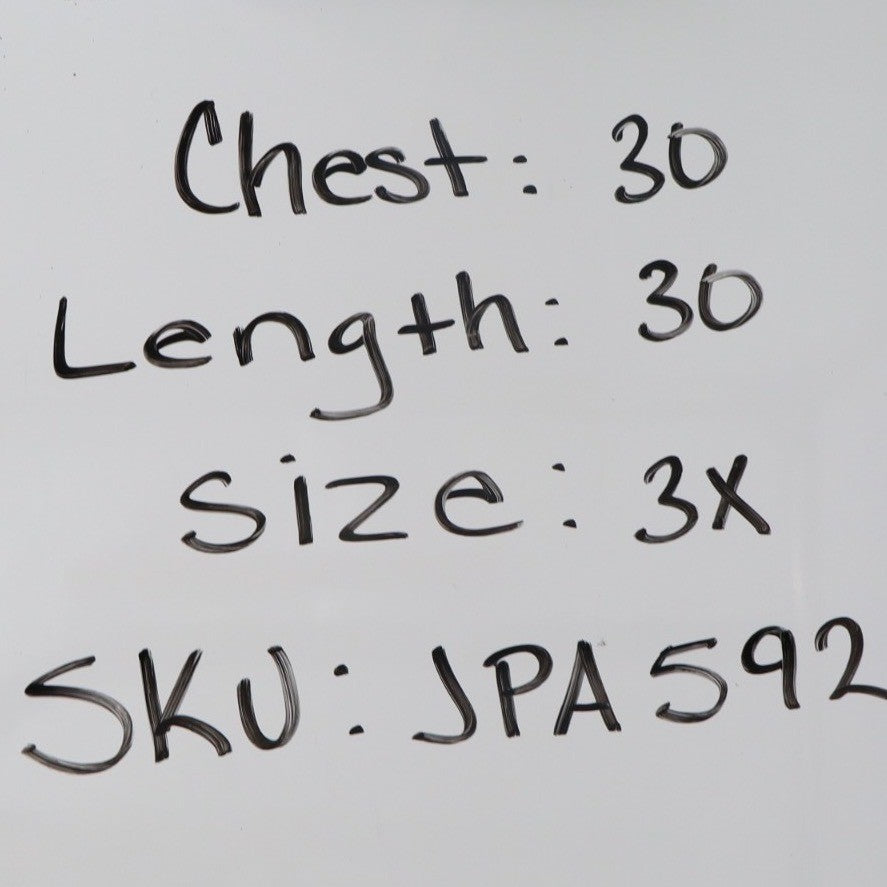 Chest: 30
Length: 30
Size: 3X
SKU: JPA592